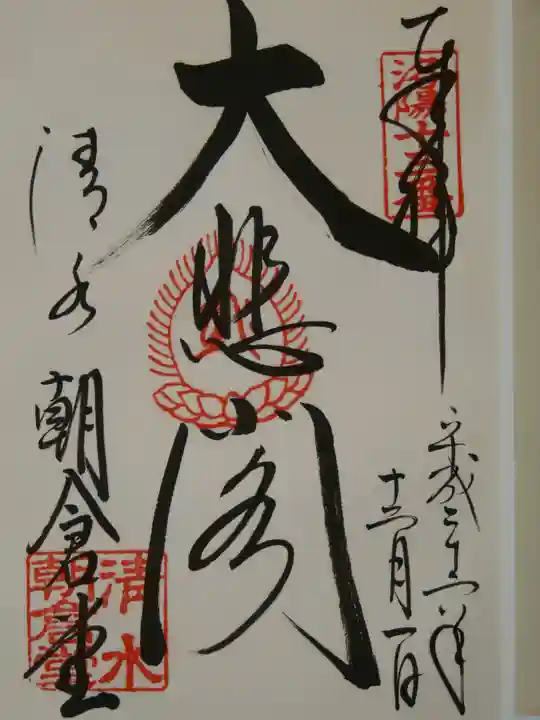 奉拝
洛陽十三番
平成二十六年
十二月一日
大悲閣
清水
朝倉堂
清水
朝倉堂